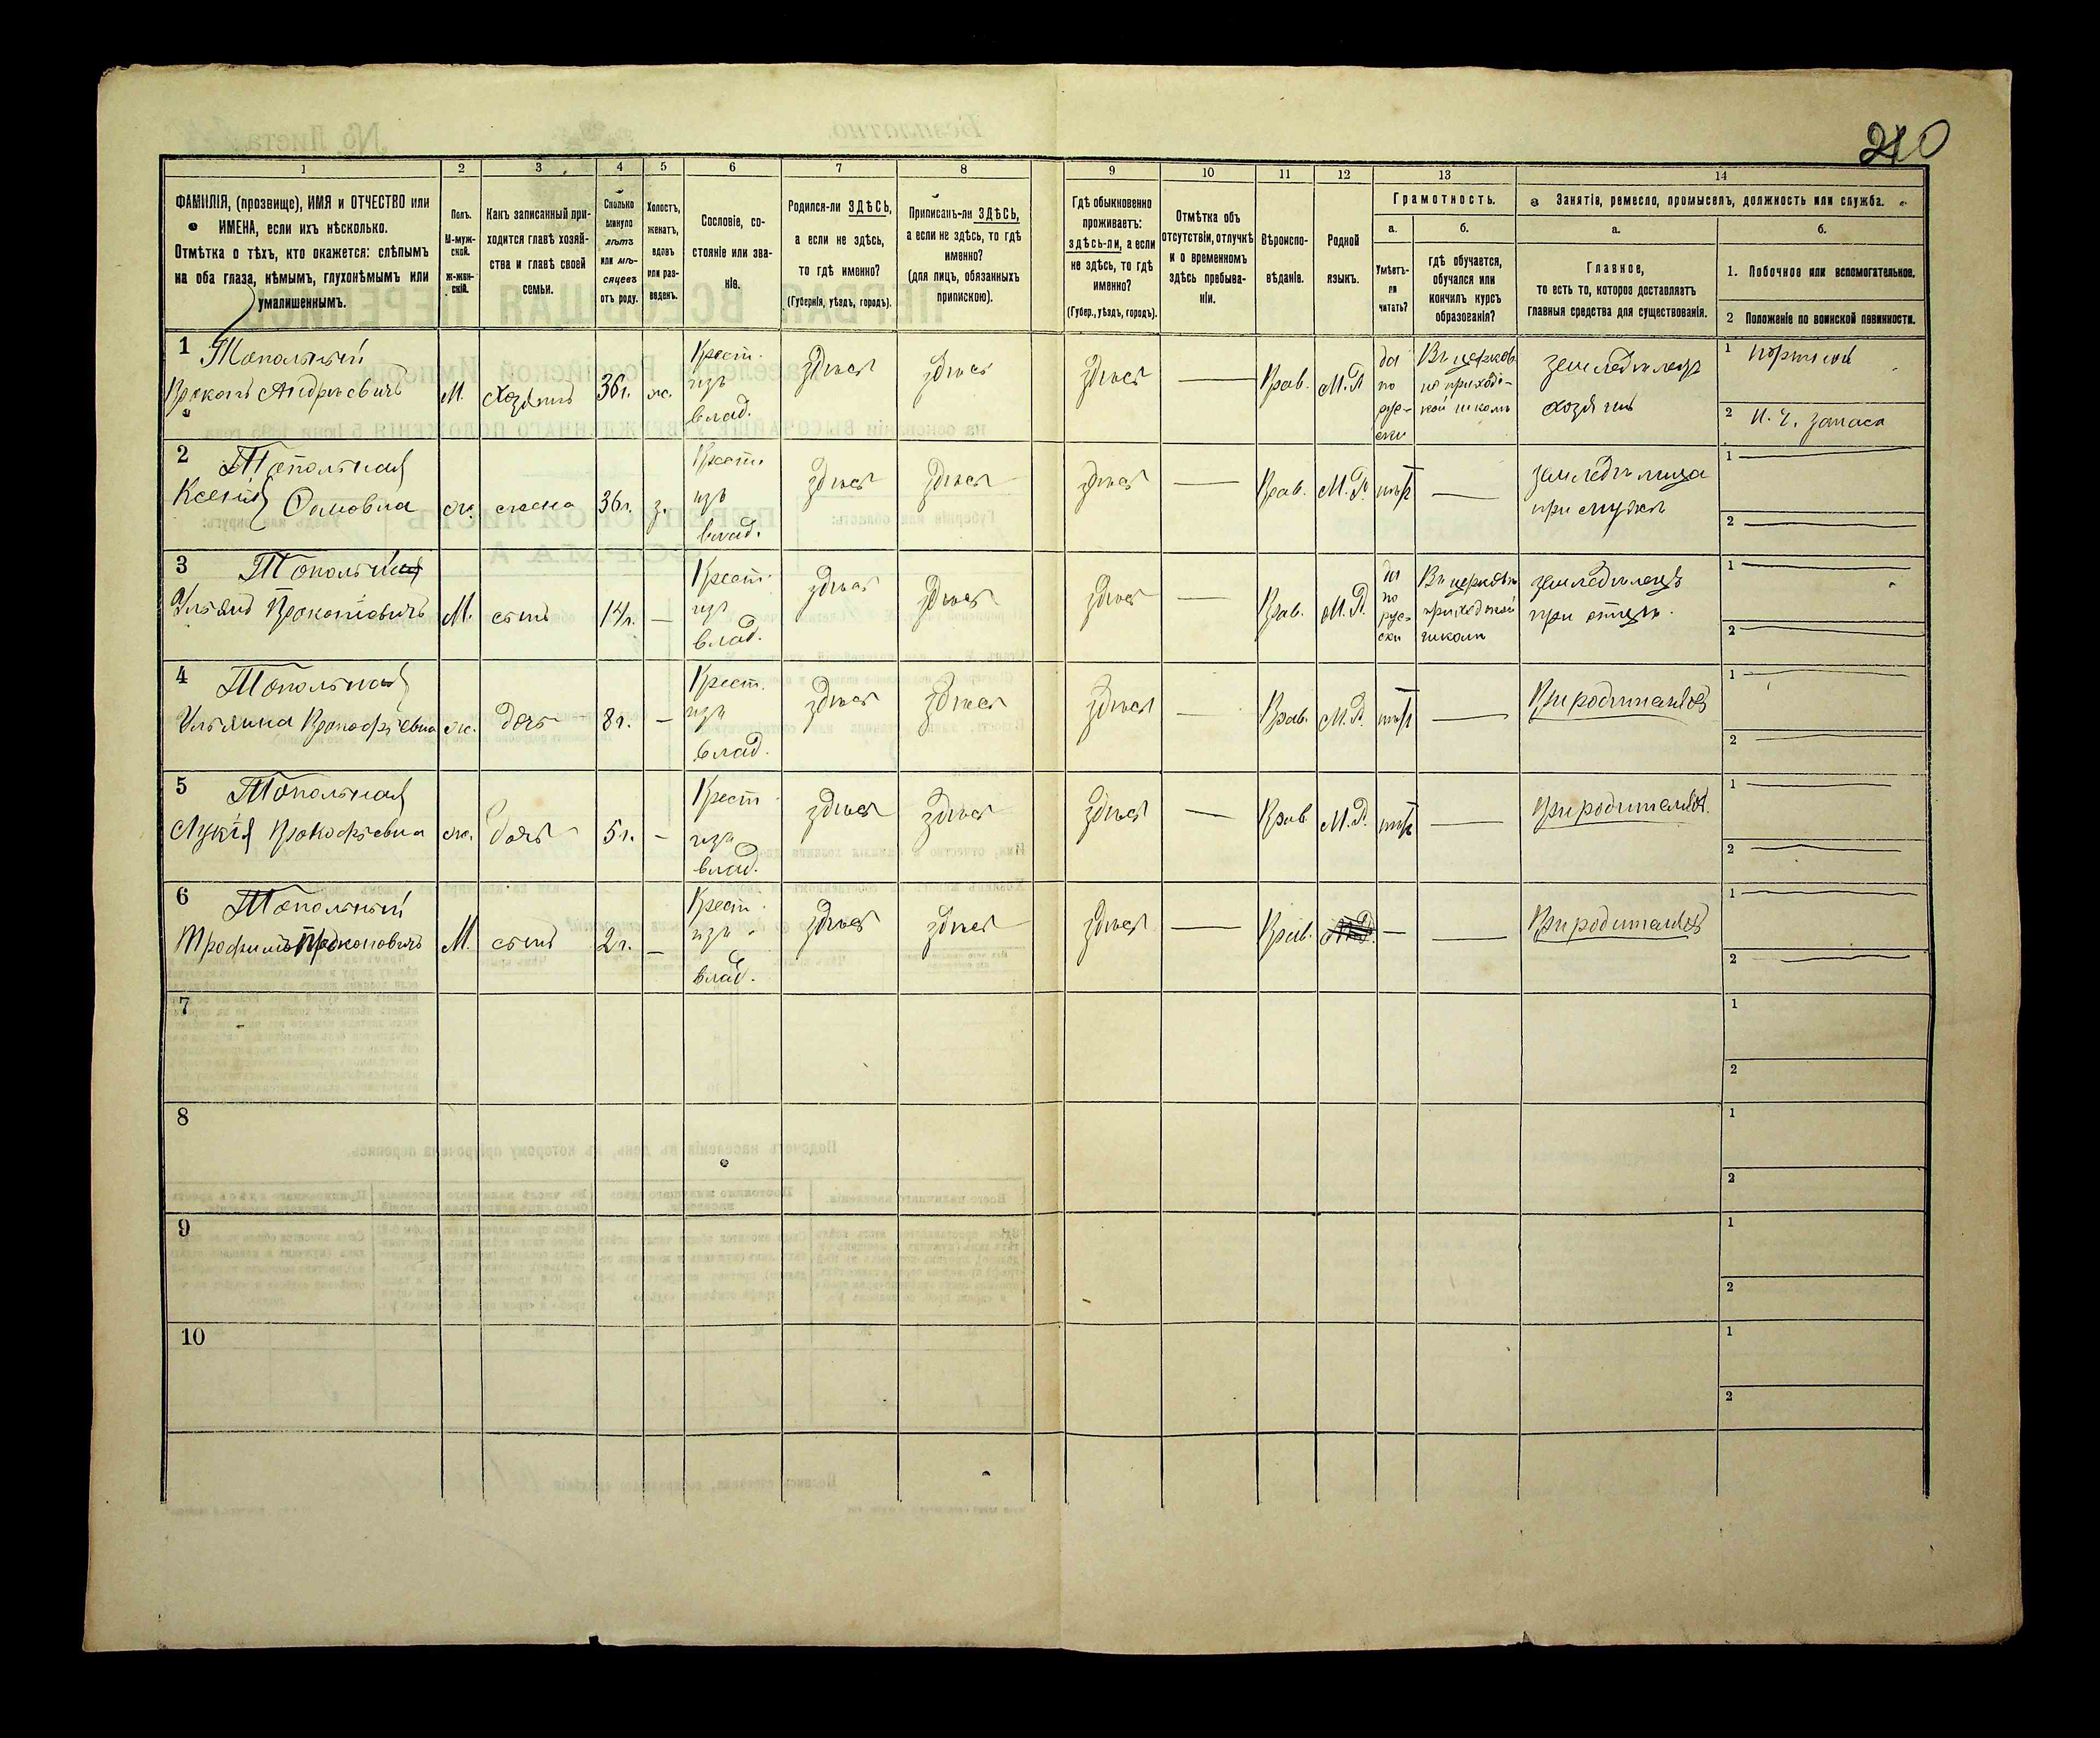 210
1
2
3
4
5
6
7
8
9
10
11
12
13
14
ФАМИЛІЯ, (прозвище), ИМЯ и ОТЧЕСТВО или
ИМЕНА, если ихъ нѣсколько.
Отмѣтка о тѣхъ, кто окажется: слѣпымъ
на оба глаза, нѣмымъ, глухонѣмымъ или
умалишеннымъ.
Полъ.
М-муж-
ской.
Ж-жен-
скій.
Какъ записанный при-
ходится главѣ хозяй-
ства и главѣ своей
семьи.
Сколько
минуло
лѣтъ
или мѣ-
сяцевъ
отъ роду.
Холостъ,
женатъ,
вдовъ
или раз-
веденъ.
Сословіе, со-
стояніе или зва-
ніе.
Родился-ли ЗДѢСЬ,
а если не здѣсь,
то гдѣ именно?
(Губернія, уѣздъ, городъ).
Приписанъ-ли ЗДѢСЬ,
а если не здѣсь, то гдѣ
именно?
(для лицъ, обязанныхъ
припискою).
Гдѣ обыкновенно
проживаетъ:
здѣсь-ли, а если
не здѣсь, то гдѣ
именно?
(Губер., уѣздъ, городъ).
Отмѣтка объ
отсутствіи, отлучкѣ
и о временномъ
здѣсь пребыва-
ніи.
Вѣроиспо-
вѣданіе.
Родной
языкъ.
Грамотность.
а.
Умѣетъ-
ли
читать?
б.
гдѣ обучается,
обучался или
кончилъ курсъ
образованія?
Занятія, ремесло, промыселъ, должность или служба.
а.
Главное,
то есть то, которое доставляетъ
главныя средства для существованія.
б.
1. Побочное или вспомогательное.
2 Положеніе по воинской повинности.
1 Топольный
Прокопъ Андрѣевичъ
М.
Хозяинъ
36 г.
ж.
Крест.
изъ
влад.
здѣсь
здѣсь
здѣсь
Прав.
М.Р.
да
по
рус-
ски
Въ церков-
но приходс-
кой школѣ
земледѣлецъ
хозяинъ
1 портной
2 И. ч. запаса
2 Топольная
Ксенія
ж.
жена
36 г.
з.
Крест.
изъ
влад.
здѣсь
здѣсь
здѣсь
Прав.
М.Р.
нѣт
земледѣлица
при мужѣ
1
2
3 Топольный
Ульянъ Прокопіевичъ
М.
сынъ
14 г.
Крест.
изъ
влад.
здѣсь
здѣсь
здѣсь
Прав.
М.Р.
да
по
рус-
ски
Въ церковно
приходской
школѣ
земледѣлецъ
при отцѣ.
1
2
4 Топольная
Ульяна Прокофіевна
ж.
дочь
8 г.
Крест.
изъ
влад.
здѣсь
здѣсь
здѣсь
Прав.
М.Р.
нѣт
При родителях
1
2
5 Топольная
Лукія Прокофіевна
ж.
дочь
5 г.
Крест
изъ
влад.
здѣсь
здѣсь
здѣсь
Прав
М.Р.
нѣт
При родителях.
1
2
6 Топольный
Трофимъ Прокоповичъ
М.
сынъ
2 г.
Крест.
изъ
влад.
здѣсь
здѣсь
здѣсь
Прав.
При родителях
1
2
7
1
2
8
1
2
9
1
2
10
1
2